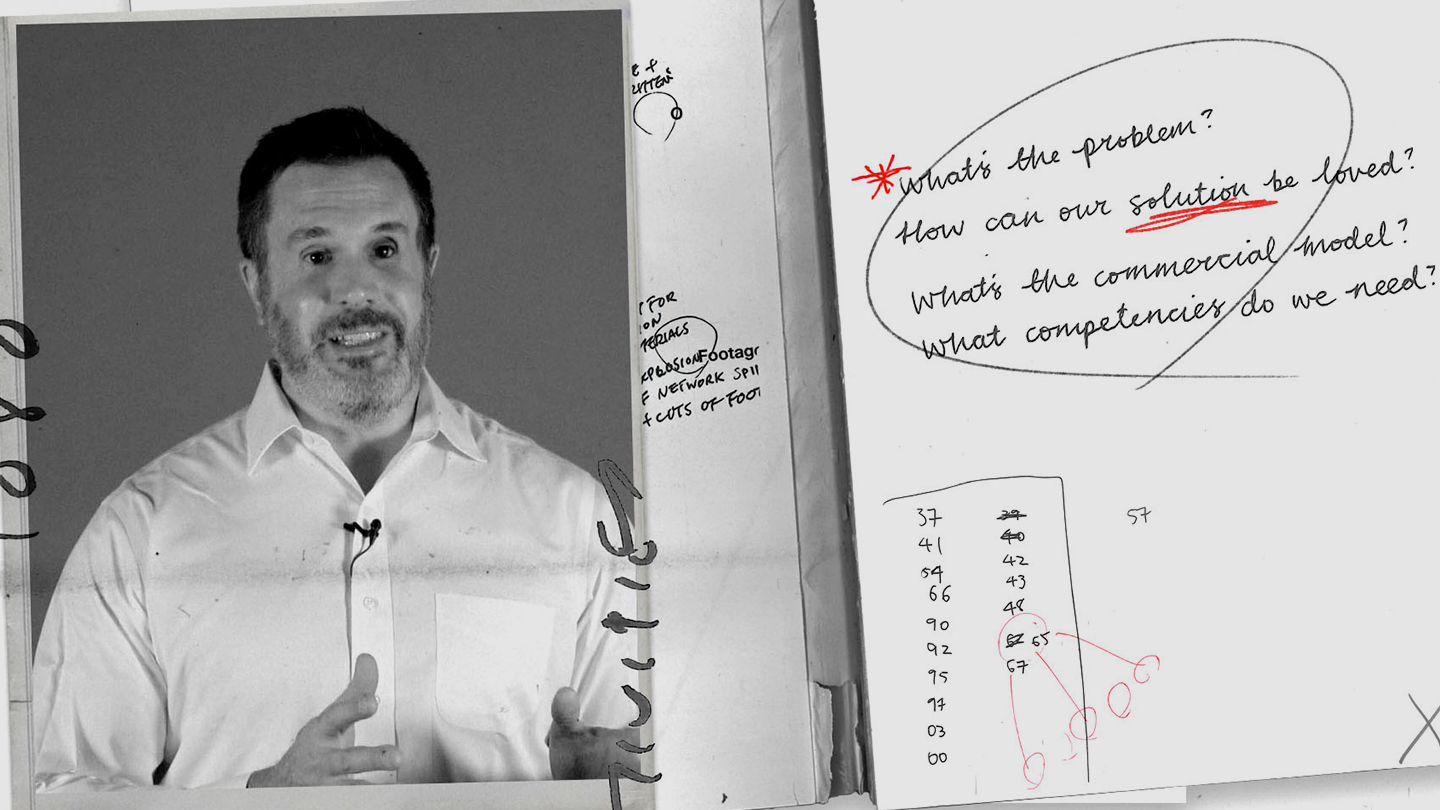 1080
E +
T FOR
ION
TERIALS
XPLOSIONFootagr
F NETWORK SPII
+ CUTS OF FOOT
What's the problem?
How can our solution be loved?
What's the commercial model?
What competencies do we need?
37 39
41 40
54 42
66 43
90 48
92 65
95 67
97
03
00
57
X